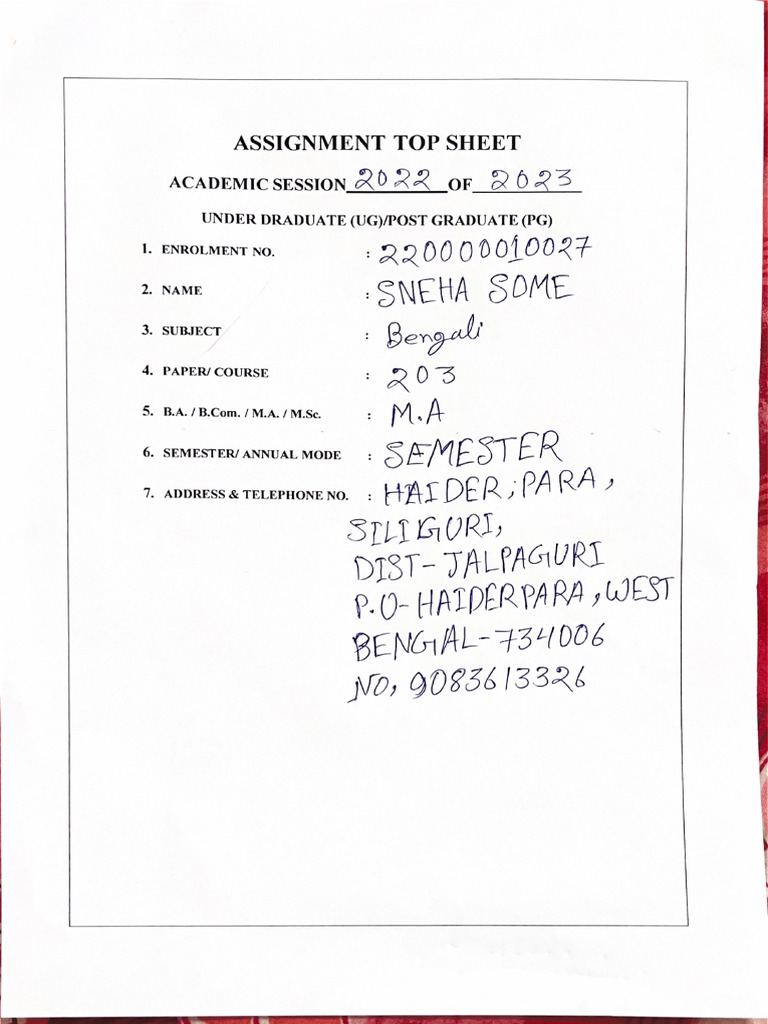 ASSIGNMENT TOP SHEET
ACADEMIC SESSION 2022 OF 2023
UNDER DRADUATE (UG)/POST GRADUATE (PG)
1. ENROLMENT NO. : 220000010027
2. NAME : SNEHA SOME
3. SUBJECT : Bengali
4. PAPER/ COURSE : 203
5. B.A. / B.Com. / M.A. / M.Sc. : M.A
6. SEMESTER/ ANNUAL MODE : SEMESTER
7. ADDRESS & TELEPHONE NO. : HAIDER, PARA,
SILIGURI,
DIST- JALPAGURI
P.O- HAIDERPARA, WEST
BENGAL-734006
NO, 9083613326